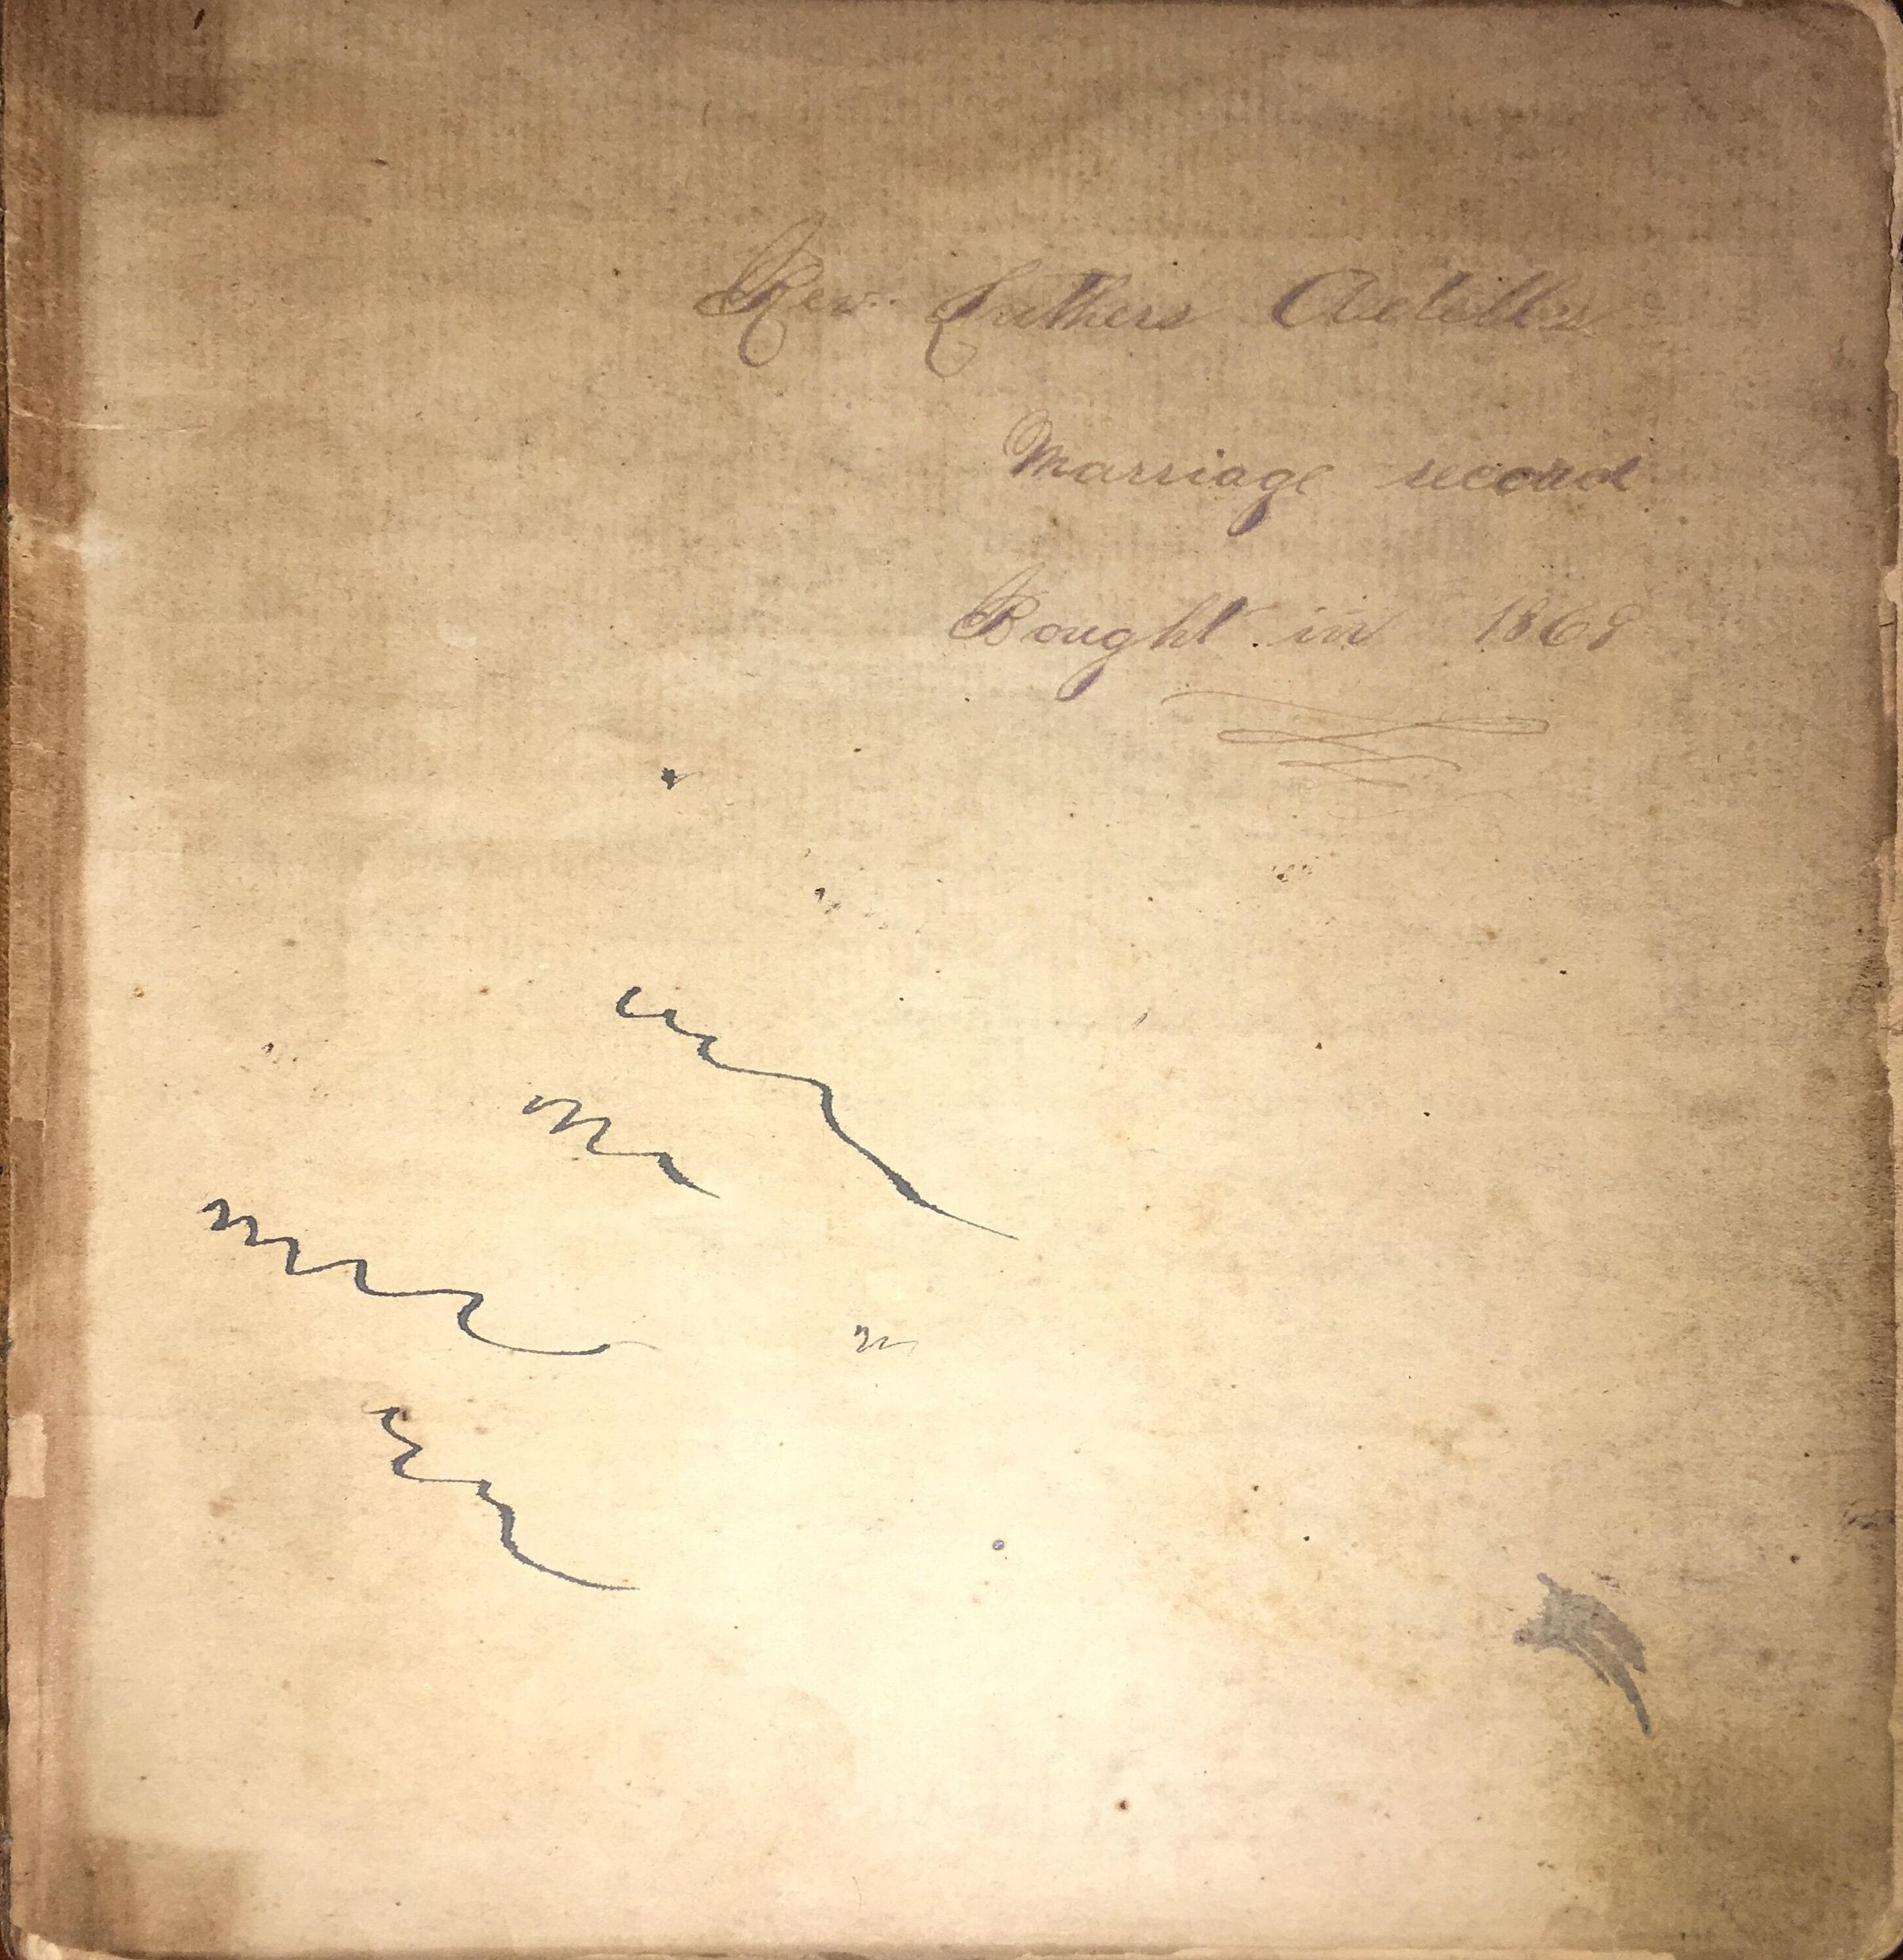 Rev. Luthers
Marriage record
Bought in 1868